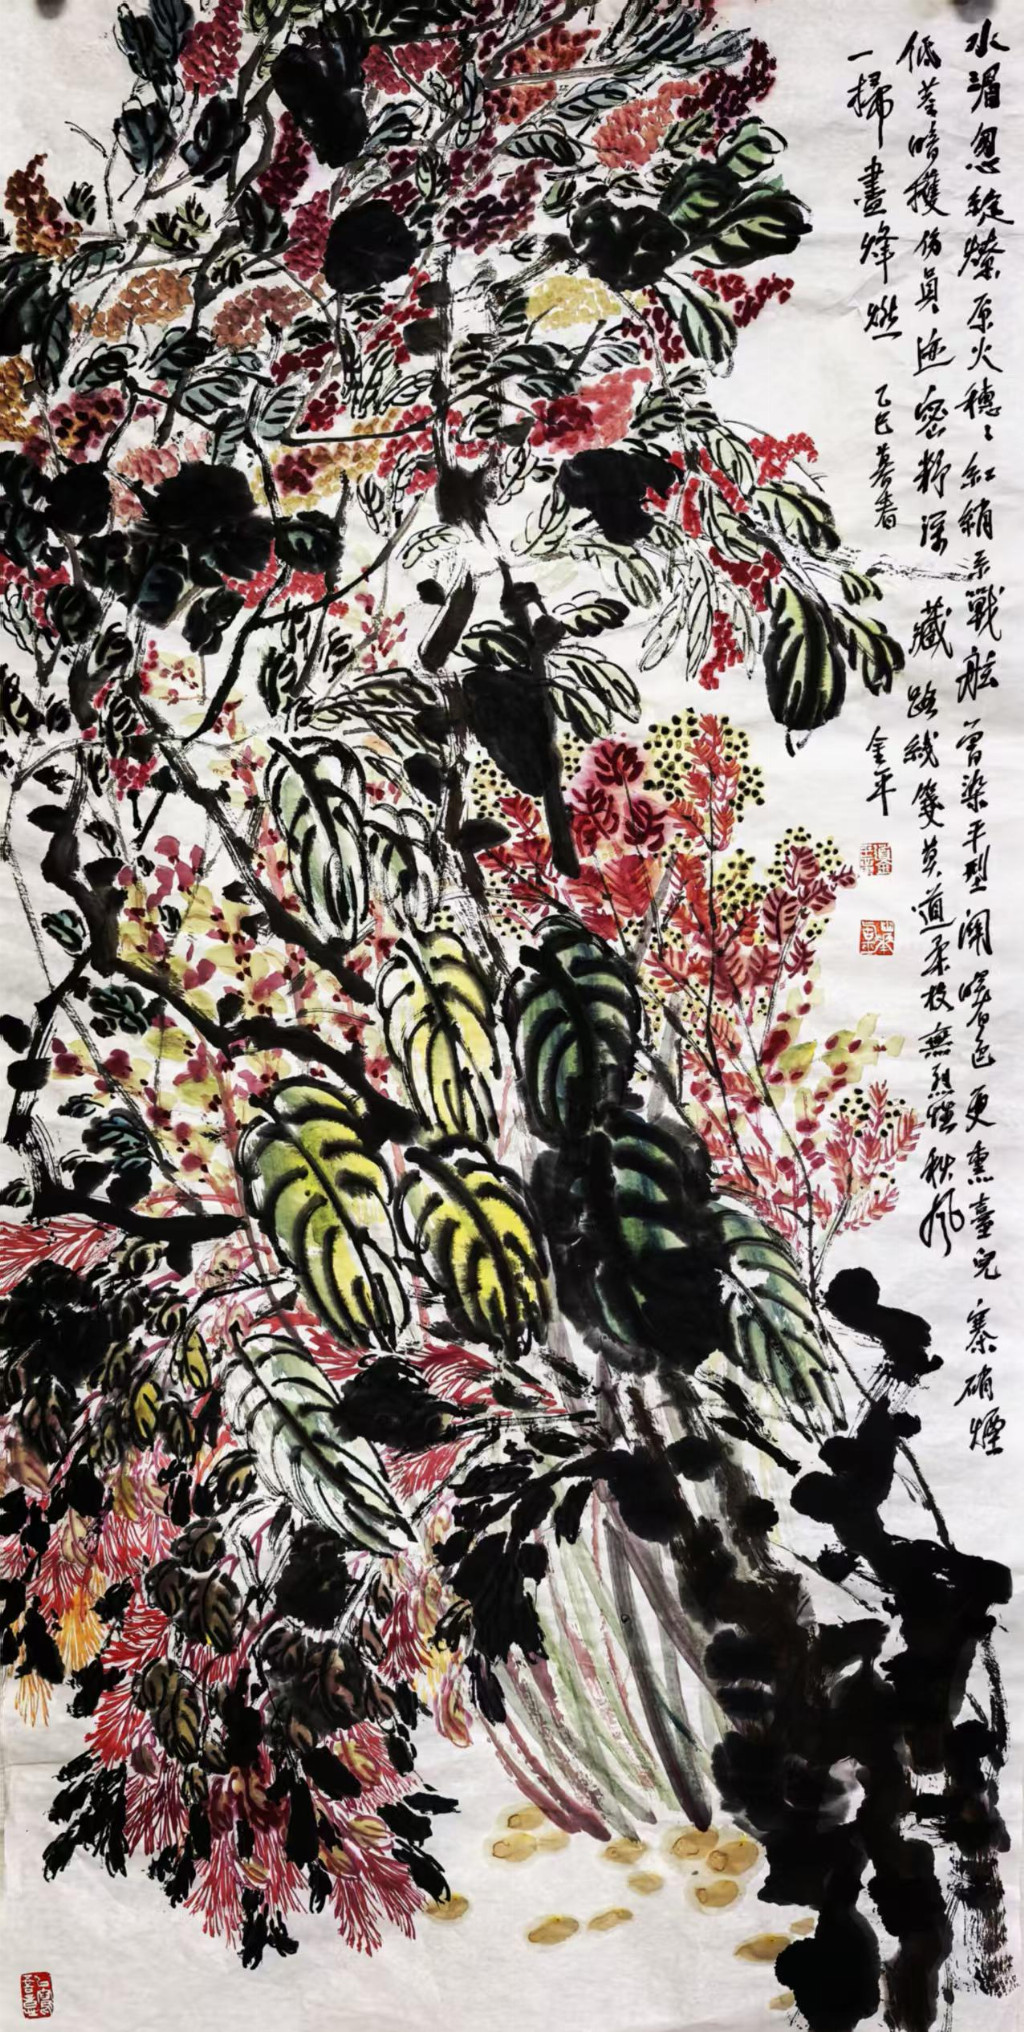 水湄忽綻燎原火穗穗紅綃系戰舷曾染平型關曙色更熏臺兒寨硝煙
低莖暗護傷員迹密籽深藏路綫箋莫道柔枝無烈性秋風
一掃盡烽燃 乙巳暮春
金平